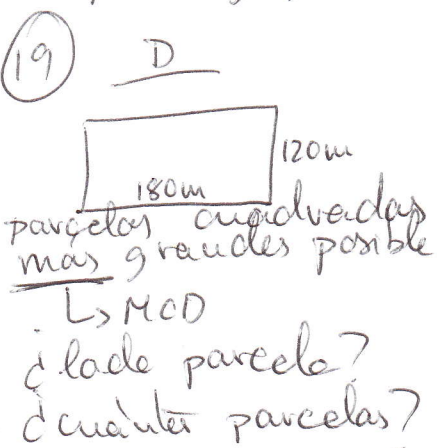 19
D
120m
180m
parcelas cuadradas
más grandes posible
↳ MCD
¿lado parcela?
¿cuántas parcelas?